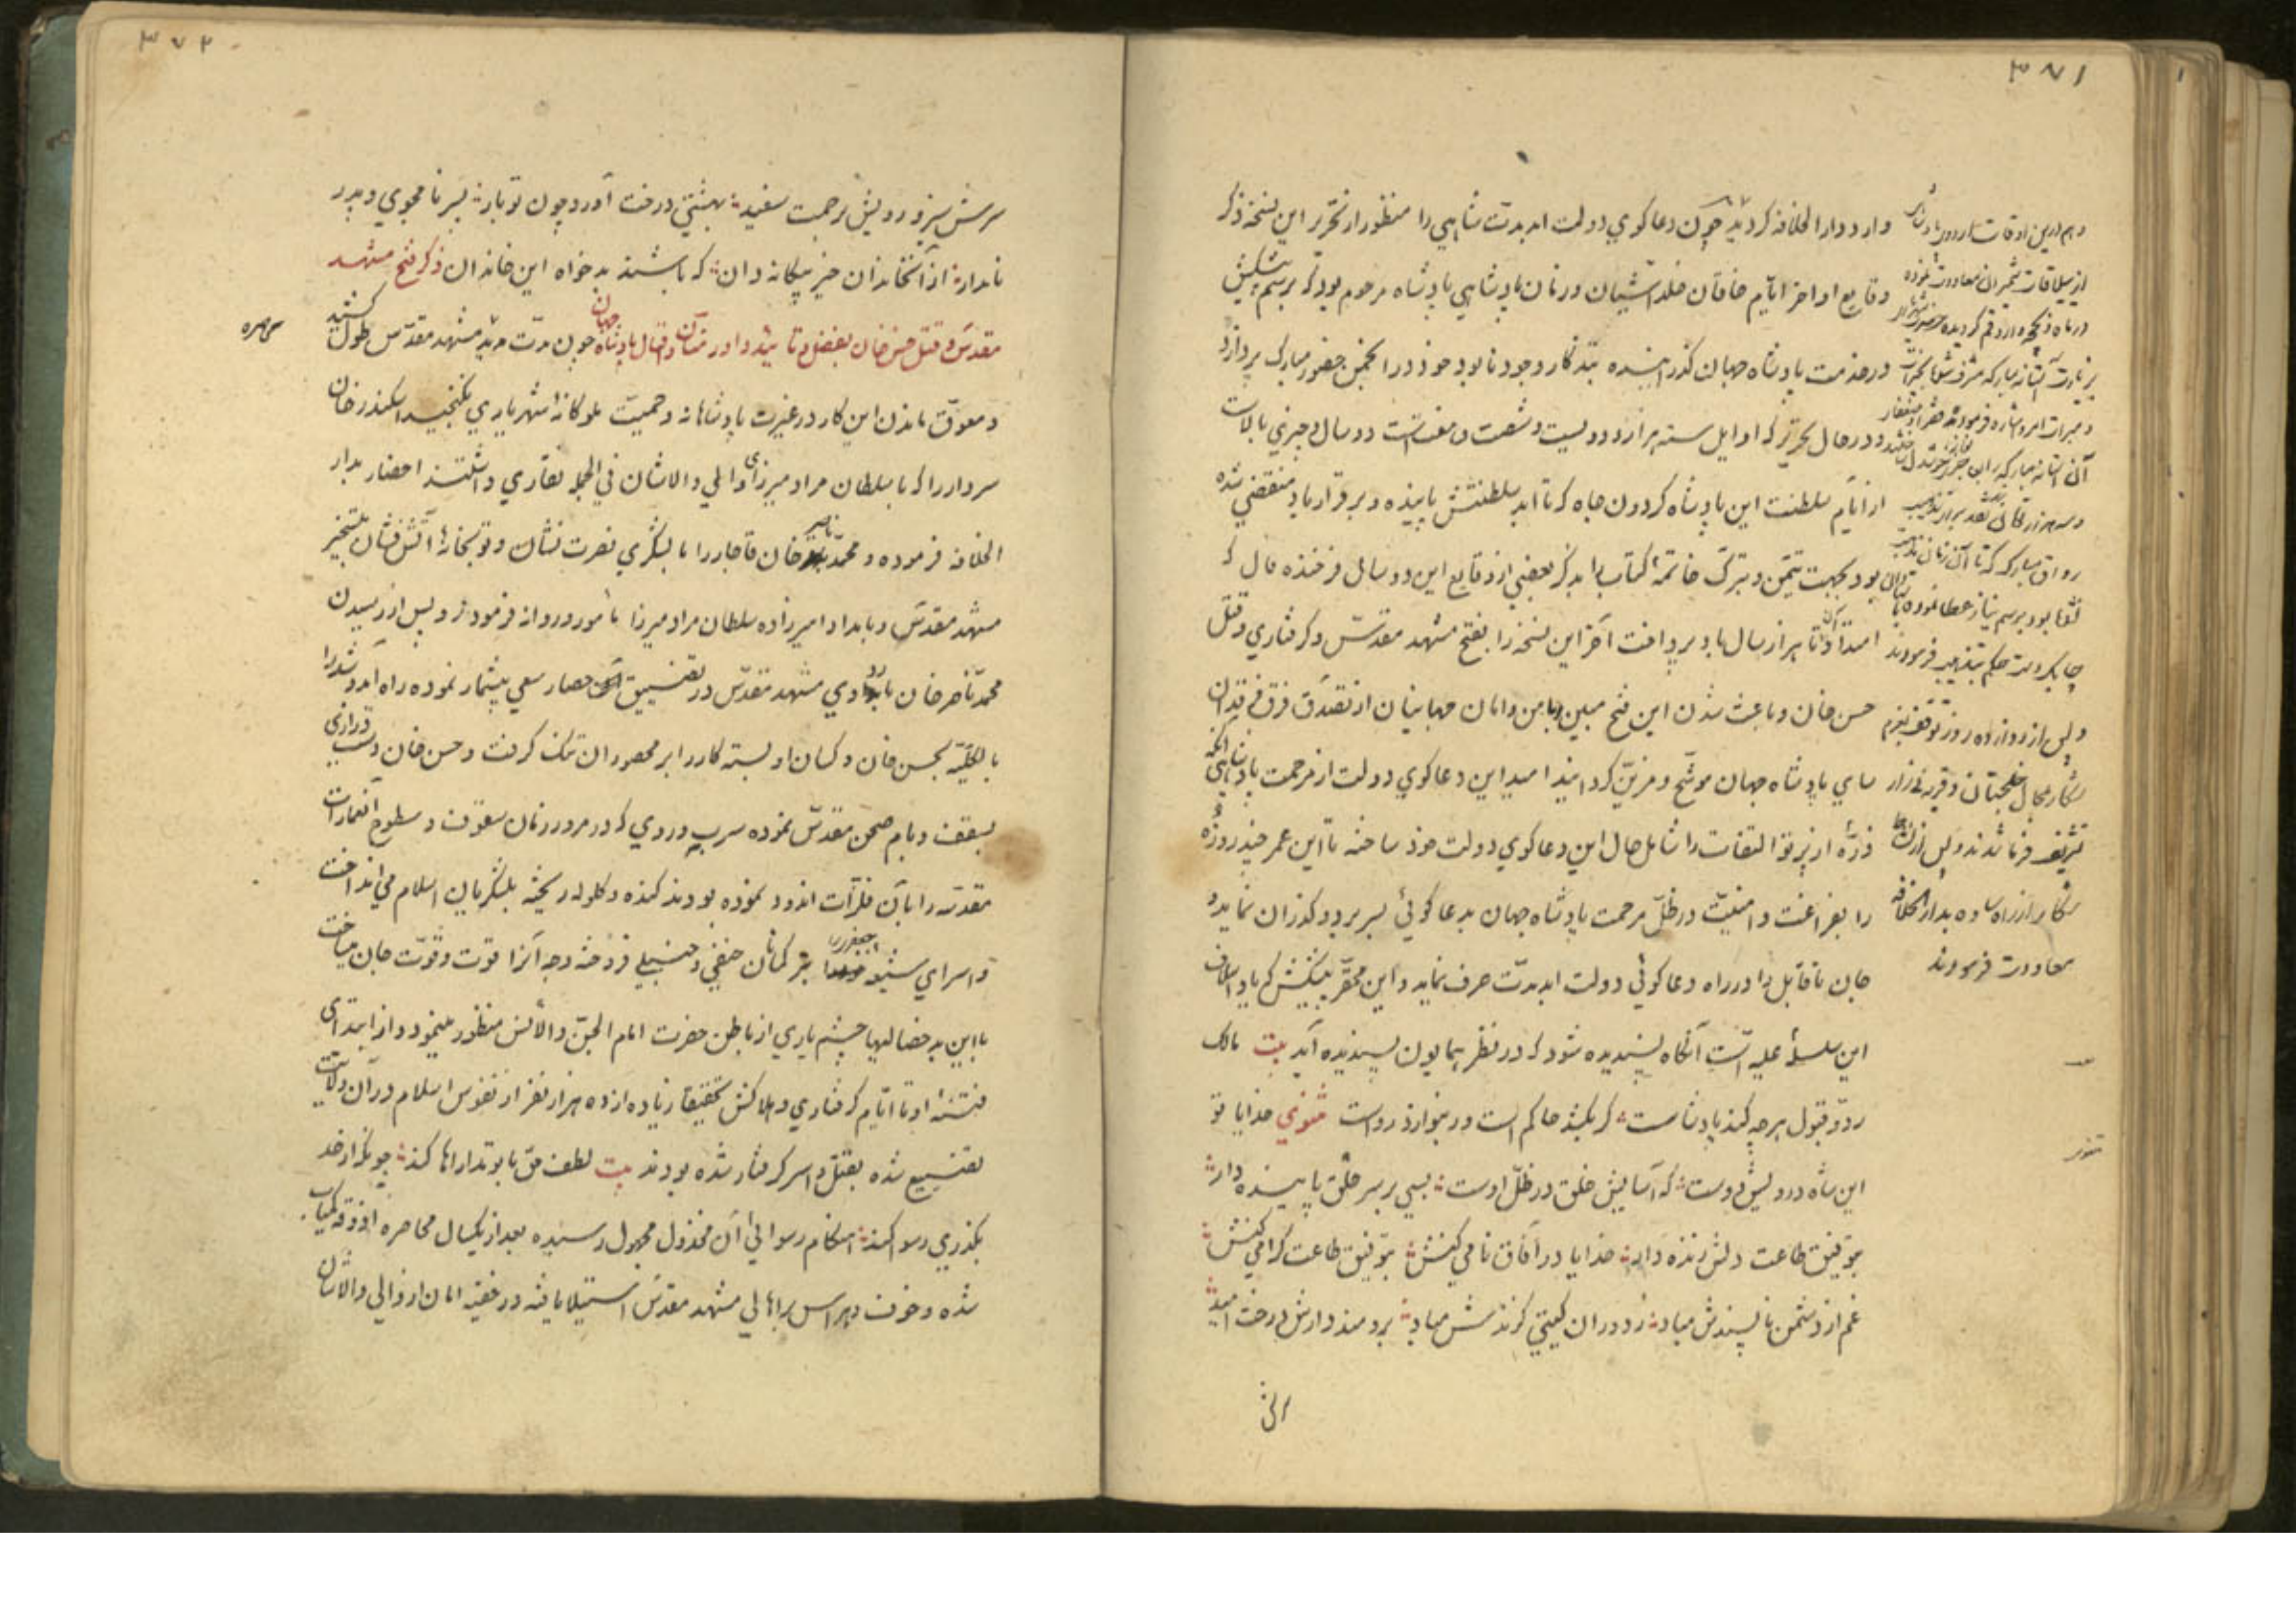 ۳۷۱
وارد دارالخلافه کردید چون دعاکوی دولت ابد مدت شاهی را منظور از تحریر این نسخه ذکر
وقایع اواخر ایام خاقان خلد آشیان و زمان پادشاهی پادشاه مرحوم بود که برسم پیشکش
در خدمت پادشاه جهان کذرانیده تذکار وجود نابود خود در انجمن حضور مبارک پردازد
و در حال تحریر که اوایل سنه هزار و دویست و شصت و هفت است دو سال و چیزی بالاست
از ایام سلطنت این پادشاه کردون جاه که تا ابد سلطنتش پاینده و برقرار باد منقضی شده
بود بجهت تیمن و تبرک خاتمه کتاب را بذکر بعضی از وقایع این دو سال فرخنده فال که
امتداد آن تا هزار سال باد پرداخت آخر این نسخه را بفتح مشهد مقدس و کرفتاری و قتل
حسن خان و باعث شدن این فتح مبین بامن و امان جهانیان از تصدق فرق فرقدان
سای پادشاه جهان موشح و مزین کردانید امید این دعاکوی دولت از مرحمت پادشاهی آنکه
ذره از پرتو التفات را شامل حال این دعاکوی دولت خود ساخته تا این عمر چند روزه
را بفراغت و امنیت در ظل مرحمت پادشاه جهان بدعا کوئی بسر برد و کذران نماید و
جان ناقابل را در راه دعاکوئی دولت ابد مدت صرف نماید و این محقر پیشکش که یاد اسلاف
این سلسله علیه است آنکاه پسندیده شود که در نظر همایون پسندیده آید بیت مالک
رد و قبول هرچه کند پادشاست کر بکشد حاکم است ور بنوازد رواست مثنوی خدایا تو
این شاه درویش دوست که آسایش خلق در ظل اوست بسی بر سر خلق پاینده دار
بتوفیق طاعت دلش زنده دار خدایا در آفاق نامی کنش بتوفیق طاعت کرامی کنش
غم از دشمن ناپسندش مباد ز دوران کیتی کزندش مباد برومند دارش درخت امید
وهم درین اوقات
از ییلاقات شمیران معاودت نموده
و پس از دوازده روز توقف بعزم
تشریف فرما شدند و پس از
شکار از راه ساوه بدارالخلافه
معاودت فرمودند
۳۷۲
سرش سبز و رویش برحمت سفید بهشتی درخت آورد چون تو بار پسر نامجوی و پدر
نامدار از آن خاندان خیر بیکانه دان که باشند بدخواه این خاندان ذکر فتح مشهد
مقدس و قتل حسن خان بفضل و تایید داور منان و اقبال پادشاه جهان چون مدت مدید مشهد مقدس طول کشید
محاصره
و معوق ماندن این کار در غیرت پادشاهانه و حمیت ملوکانه شهریاری نکنجید اسکندر خان
سردار را که با سلطان مراد میرزای والی والاشان فی الجمله نقاری داشتند احضار بدار
الخلافه فرموده و محمد ناصر خان قاجار را با لشکری نصرت نشان و توپخانه آتش فشان بتسخیر
مشهد مقدس و بامداد امیرزاده سلطان مراد میرزا مامور و روانه فرمودند و پس از رسیدن
محمد ناصر خان باردوی مشهد مقدس در تضییق حصار سعی بیشمار نموده راه آمد و شد را
بالکلیه بحسن خان و کسان او بسته کار را بر محصوران تنک کرفت و حسن خان دست درازی
بسقف و بام صحن مقدس نموده سرب و روی که در مرور زمان سقوف و سطوح آن عمارات
مقدسه را بآن فلزات اندود نموده بودند کنده و کلوله ریخته بلشکریان اسلام می انداخت
و اسرای شیعه جعفری را بترکمانان حنفی و حنبلی فروخته وجه آنرا قوت و قوت جان میساخت
با این بد خصالیها چشم یاری از باطن حضرت امام الجن والانس منظور مینمود و از ابتدای
فتنه او تا ایام کرفتاری و هلاکش تحقیقا زیاده از ده هزار نفر از نفوس اسلام در آن ولایت
تضییع شده بقتل و اسر کرفتار شده بودند بیت لطف حق با تو مداراها کند چونکه از حد
بکذری رسوا کند هنکام رسوائی آن مخذول مجهول رسیده بعد از یکسال محاصره آذوقه کمیاب
شده و خوف و هراس بر اهالی مشهد مقدس استیلا یافته در خفیه امان از والی والاشان